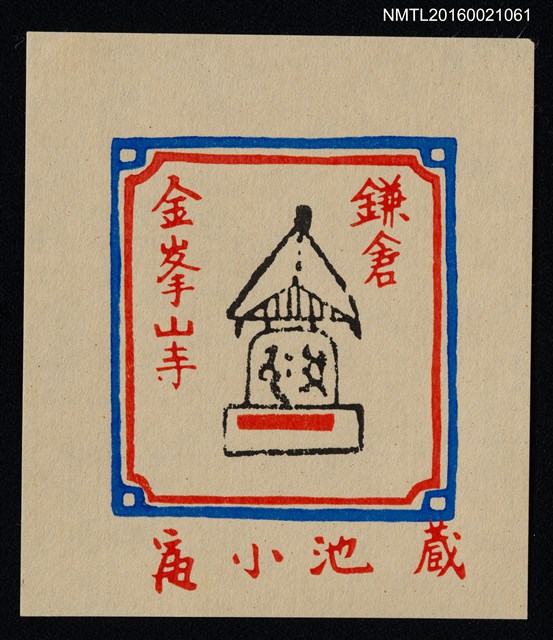 NMTL20160021061
鎌倉
金峯山寺
小池
蔵